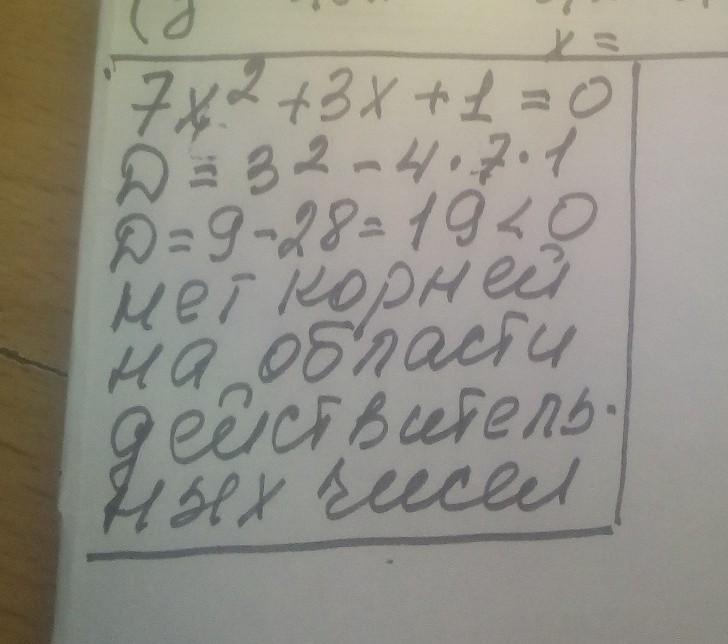 x =
7x² + 3x + 1 = 0
D = 3² - 4 · 7 · 1
D = 9 - 28 = 19 < 0
нет корней
на области
действитель-
ных чисел